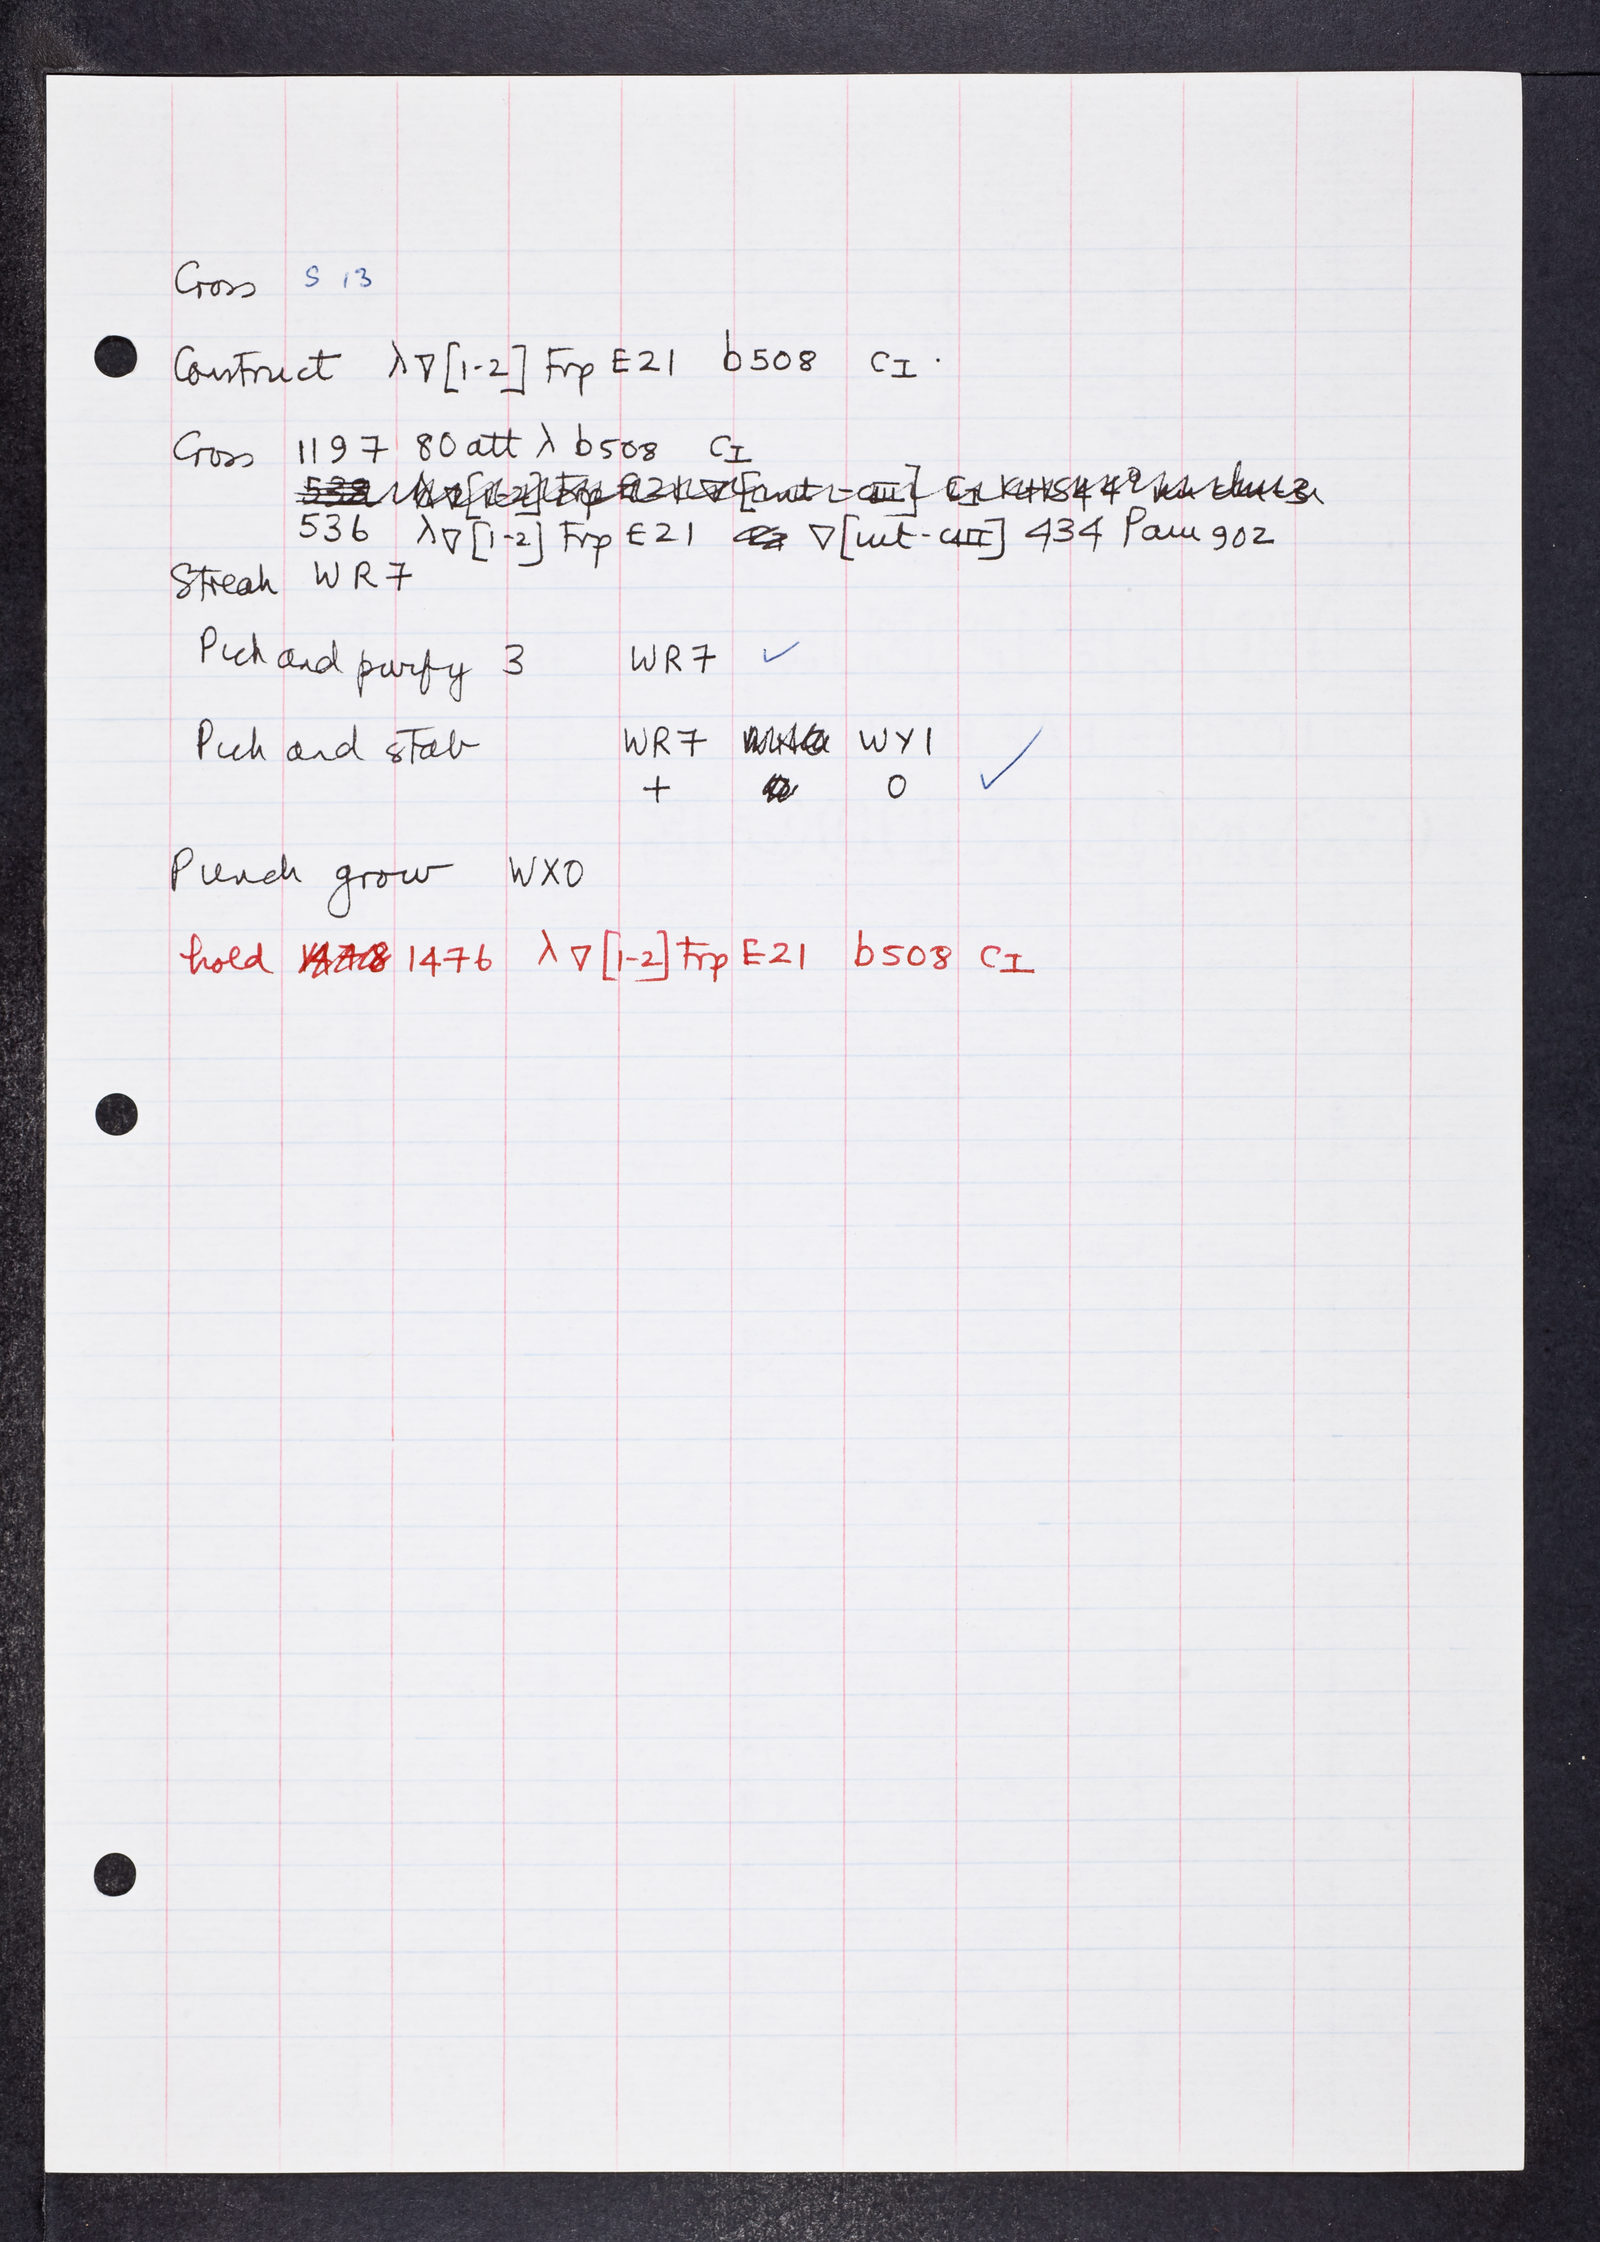 Cross S 13
Construct λ∇[1-2] Frp E21 b508 cI.
Cross 1197 80 att λ b508 cI
536 λ∇[1-2] Frp E21 ∇[int-cIII] 434 Pam 902
Streak WR7
Pick and purify 3 WR7 ✓
Pick and stab WR7 WY1
+ 0 ✓
Plunch grow WX0
hold 1476 λ∇[1-2] Frp E21 b508 cI